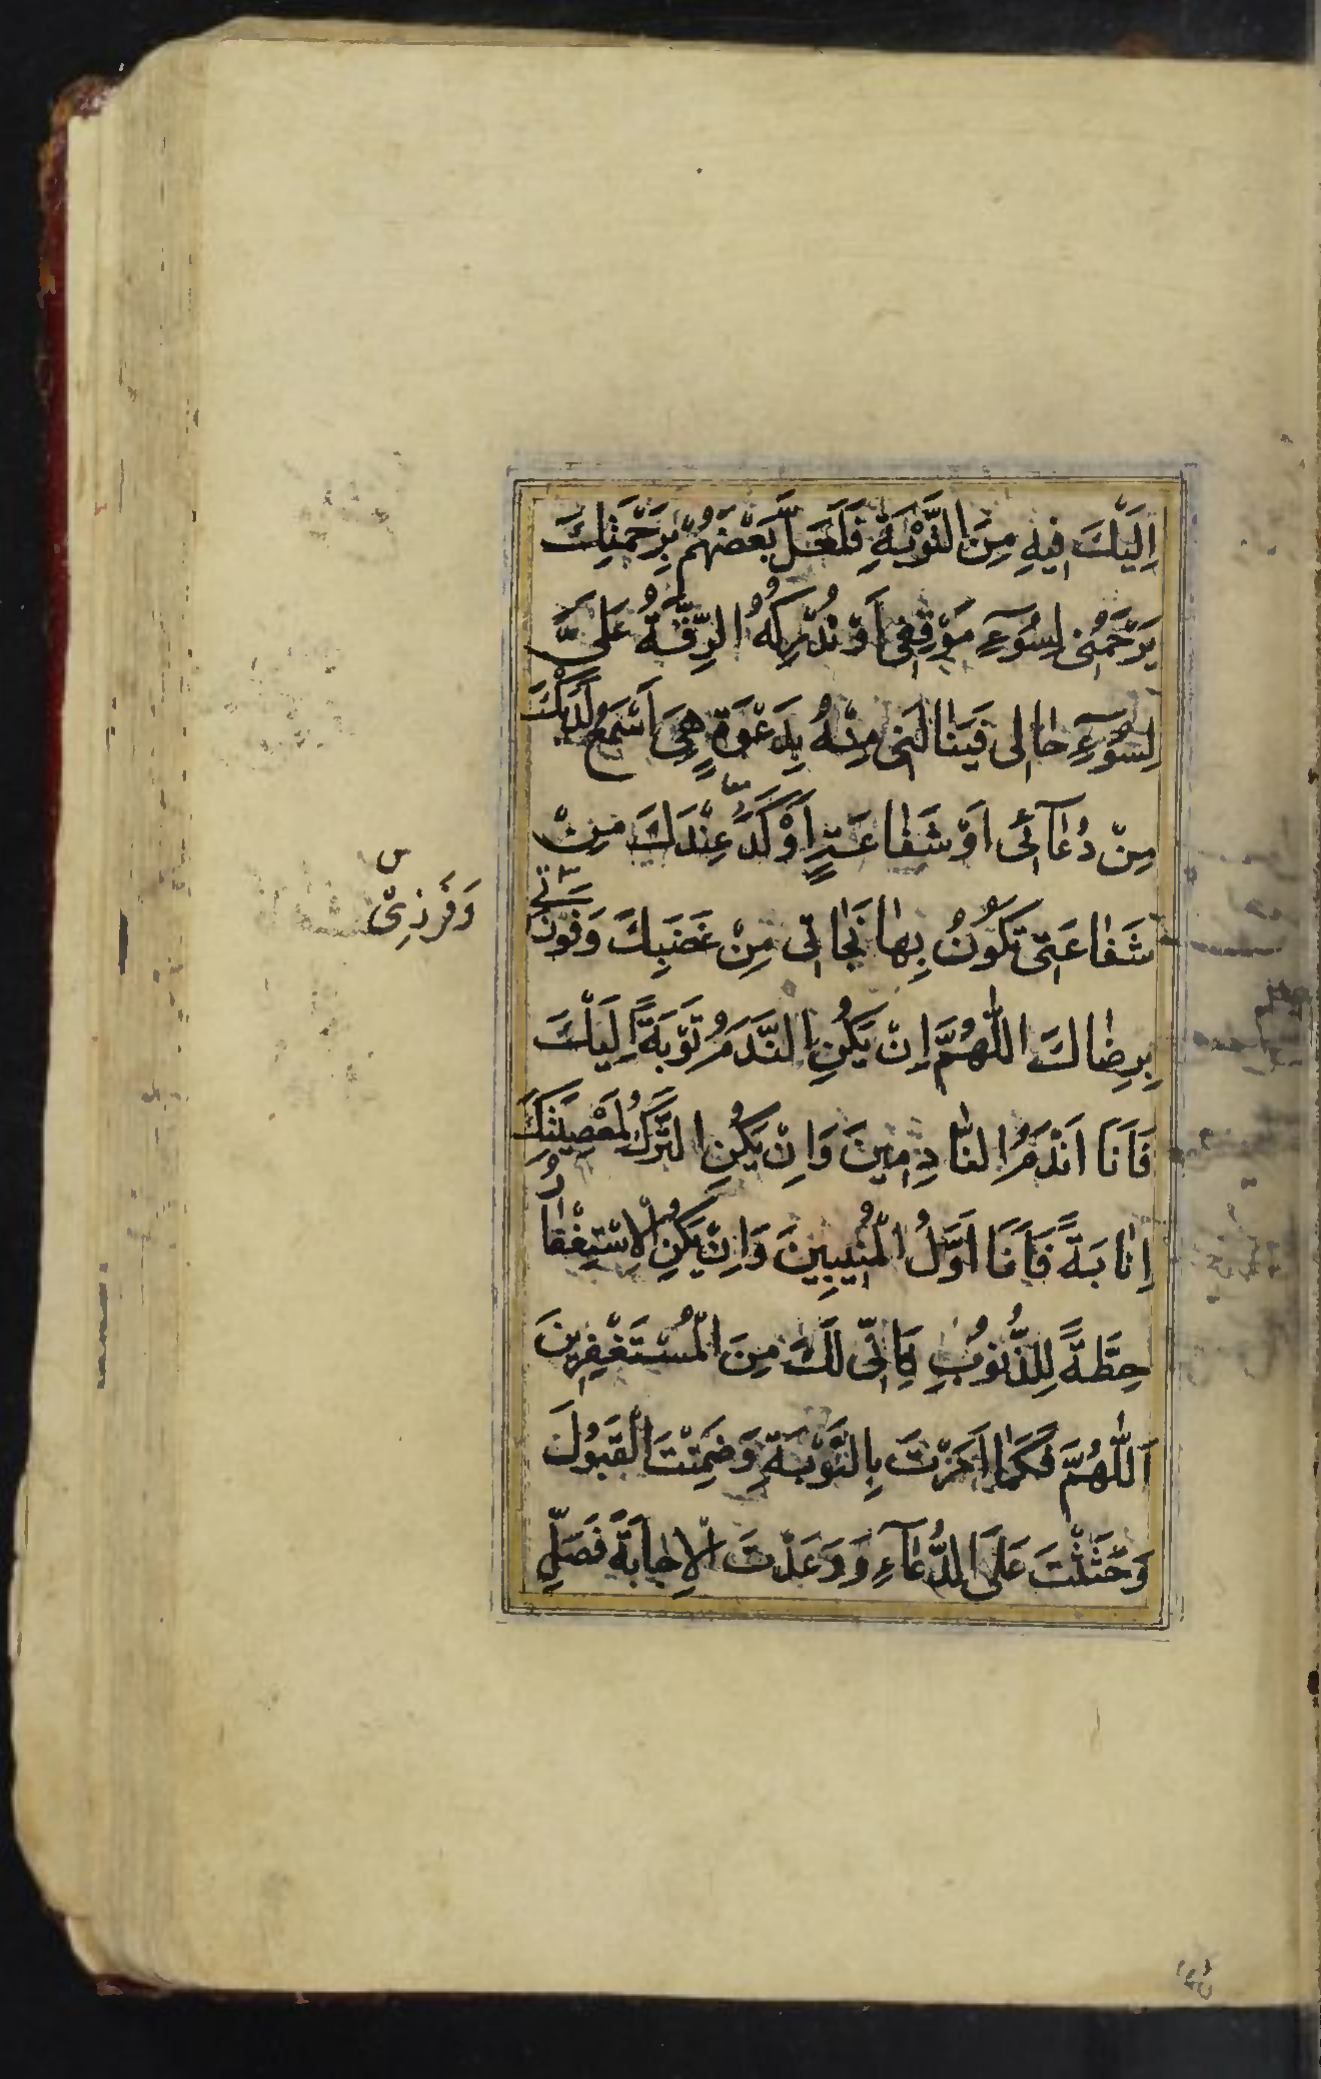 اِلَيْكَ فِيهِ مِنَ التَّوْبَةِ فَلَعَلَّ بَعْضَهُمْ بِرَحْمَتِكَ
يَرْحَمُنِى لِسُوۤءِ مَوْقِفِى اَوْ تُدْرِكُهُ الرِّقَّةُ عَلَىَّ
لِسُوۤءِ حٰالِى فَيَنٰالَنِى مِنْهُ بِدَعْوَةٍ هِىَ اَسْمَعُ لَدَيْكَ
مِنْ دُعٰاۤئِى اَوْ شَفٰاعَةٍ اَوْكَدُ عِنْدَكَ مِنْ
شَفٰاعَتِى تَكُوُنُ بِهٰا نَجٰاتِى مِنْ غَضَبِكَ وَفَوْزَتِى
وَفَوْزِىْ س
بِرِضٰاكَ اللّٰهُمَّ اِنْ يَكُنِ النَّدَمُ تَوْبَةً اِلَيْكَ
فَاَنَا اَنْدَمُ النّٰادِمِينَ وَاِنْ يَكُنِ التَّرْكُ لِمَعْصِيَتِكَ
اِنٰابَةً فَاَنَا اَوَّلُ الْمُنِيبِينَ وَاِنْ يَكُنِ الْاِسْتِغْفٰارُ
حِطَّةً لِلذُّنُوُبِ فَاِنِّى لَكَ مِنَ الْمُسْتَغْفِرِينَ
اَللّٰهُمَّ فَكَمٰا اَمَرْتَ بِالتَّوْبَةِ وَضَمِنْتَ الْقَبُولَ
وَحَثَثْتَ عَلَى الدُّعٰاۤءِ وَوَعَدْتَ الْاِجٰابَةَ فَصَلِّ